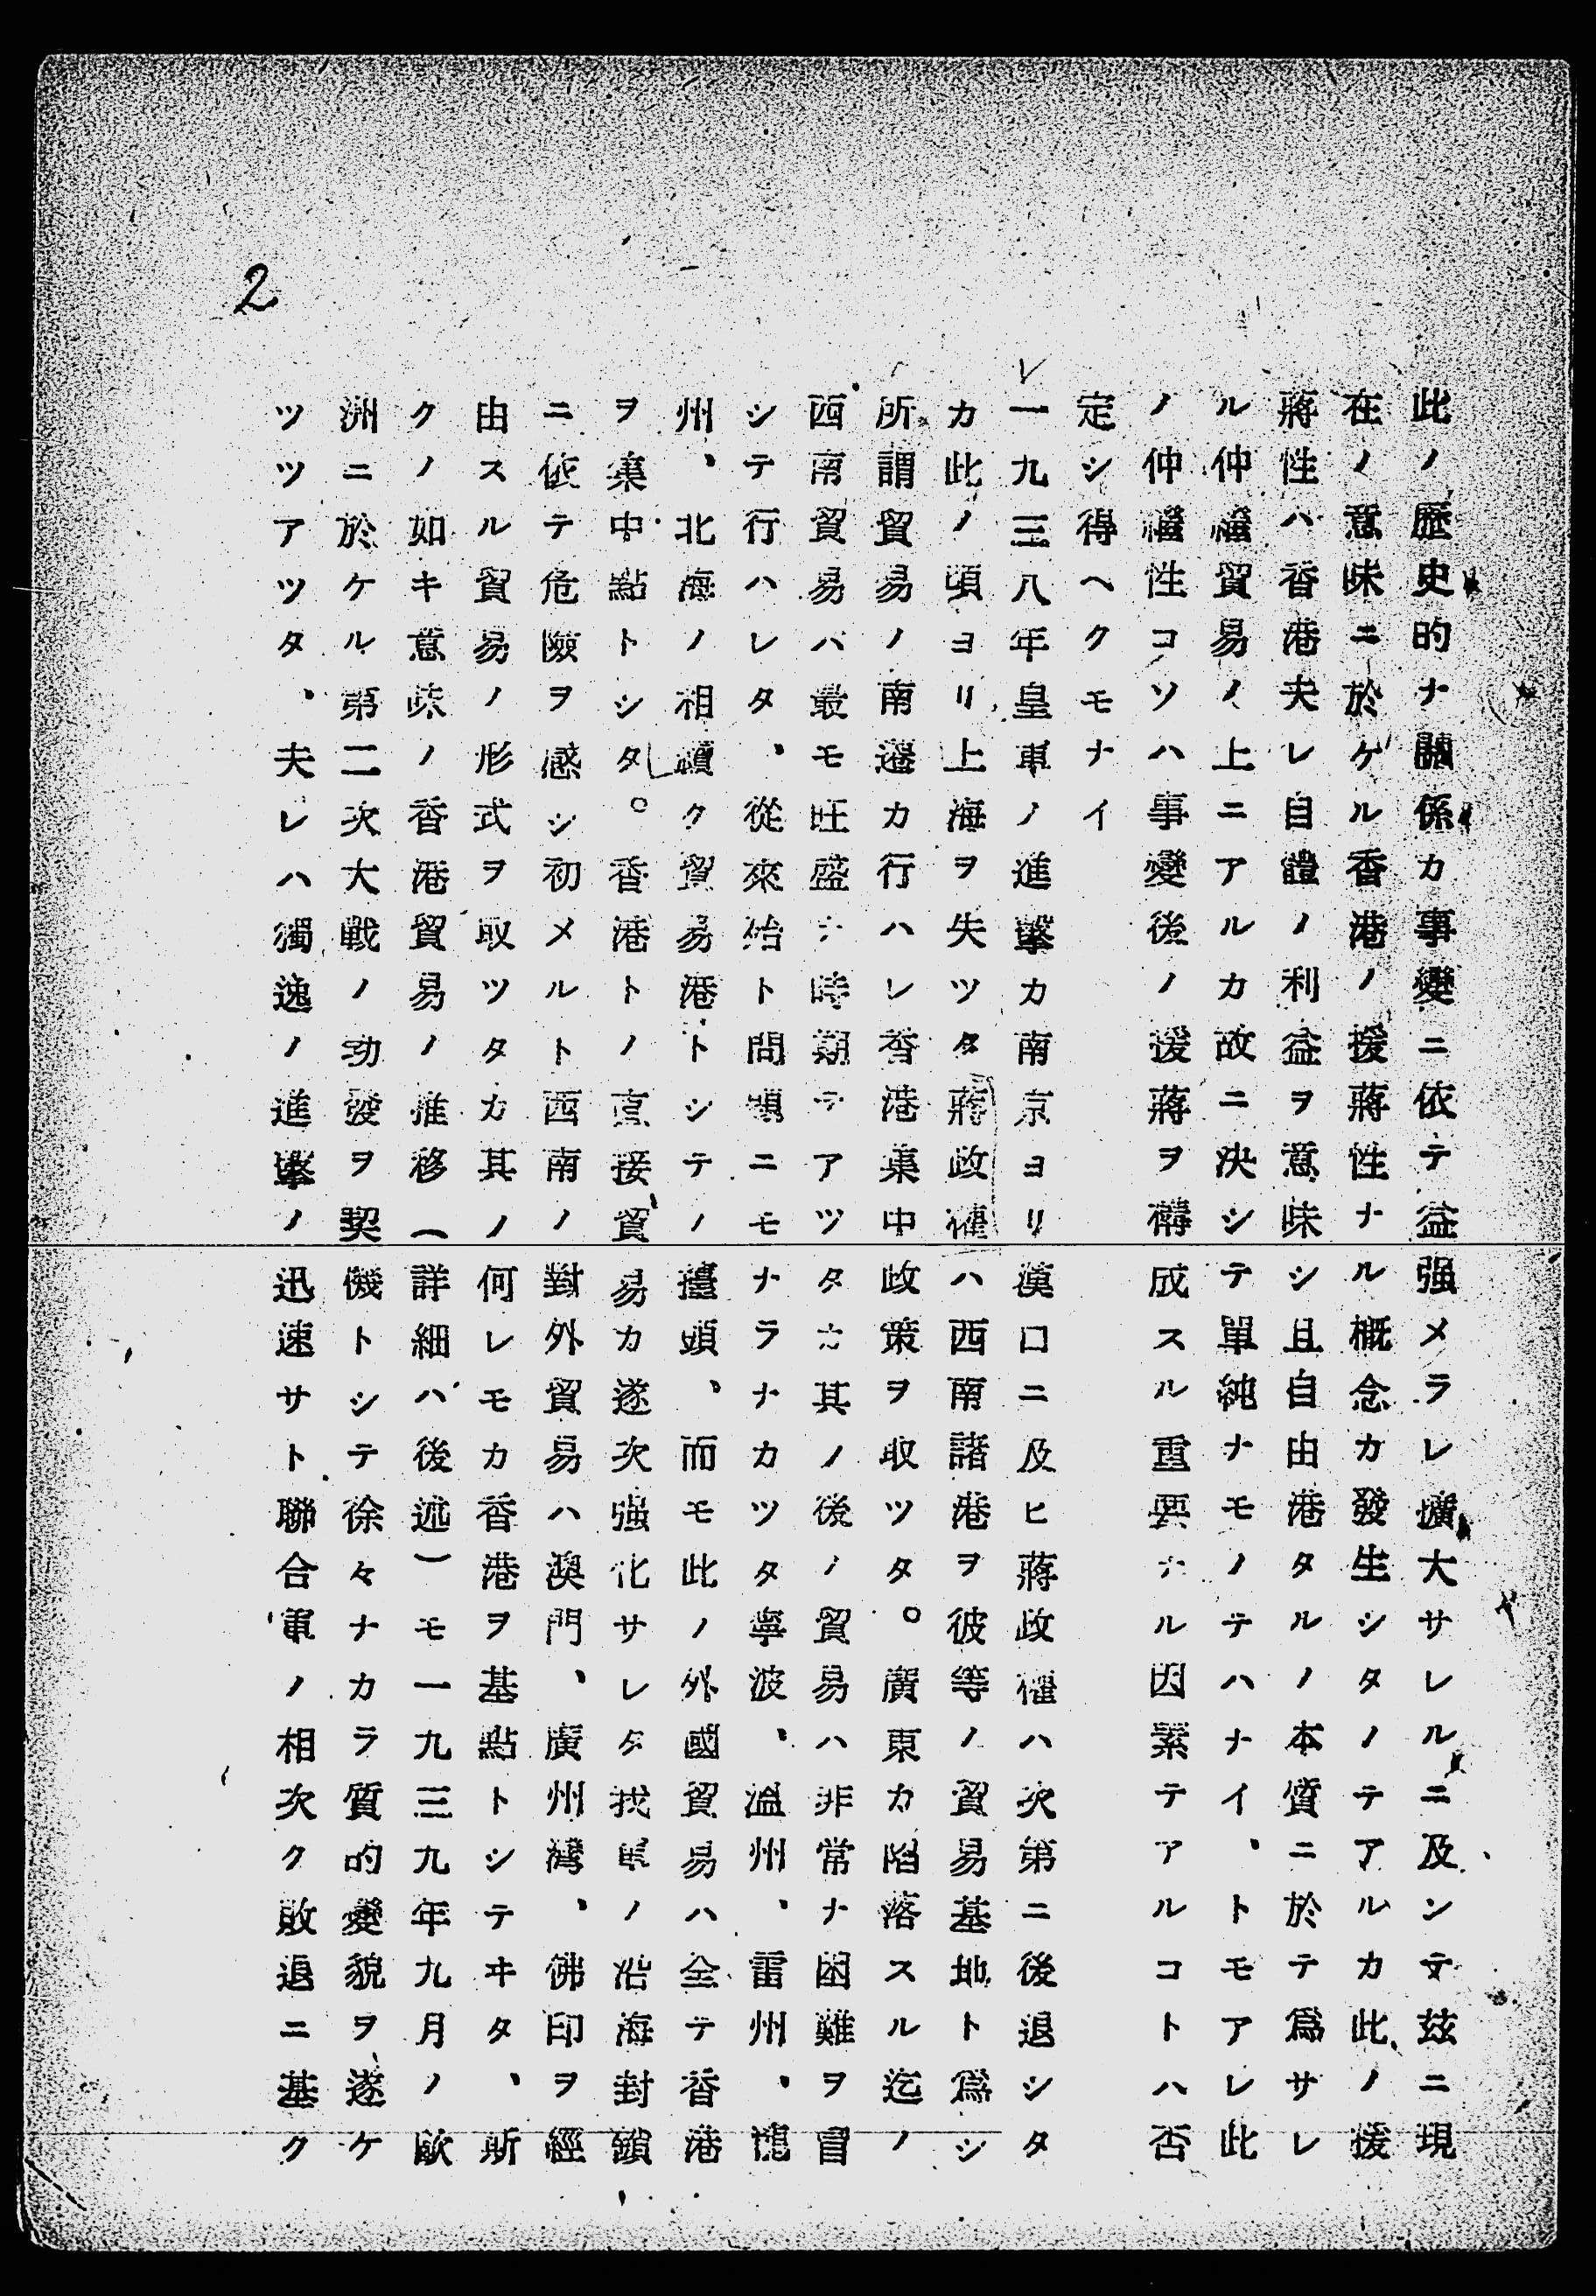 2
此ノ歴史的ナ關係カ事變ニ依テ益强メラレ擴大サレルニ及ンテ茲ニ現
在ノ意味ニ於ケル香港ノ援蔣性ナル概念カ發生シタノテアルカ此ノ援
蔣性ハ香港夫レ自體ノ利益ヲ意味シ且自由港タルノ本質ニ於テ爲サレ
ル仲繼貿易ノ上ニアルカ故ニ決シテ單純ナモノテハナイ、トモアレ此
ノ仲繼性コソハ事變後ノ援蔣ヲ構成スル重要ナル因素テアルコトハ否
定シ得ヘクモナイ
一九三八年皇軍ノ進擊カ南京ヨリ漢口ニ及ヒ蔣政權ハ次第ニ後退シタ
カ此ノ頃ヨリ上海ヲ失ツタ蔣政權ハ西南諸港ヲ彼等ノ貿易基地ト爲シ
所謂貿易ノ南遷カ行ハレ香港集中政策ヲ取ツタ。廣東カ陷落スル迄ノ
西南貿易ハ最モ旺盛ナ時期テアツタカ其ノ後ノ貿易ハ非常ナ困難ヲ冒
シテ行ハレタ、從來始ト問題ニモナラナカツタ寧波、溫州、雷州、
州、北海ノ相續ク貿易港トシテノ擡頭、而モ此ノ外國貿易ハ全テ香港
ヲ集中點トシタ。香港トノ直接貿易カ遂次强化サレタ我軍ノ沿海封鎖
ニ依テ危險ヲ感シ初メルト西南ノ對外貿易ハ澳門、廣州灣、佛印ヲ經
由スル貿易ノ形式ヲ取ツタカ其ノ何レモカ香港ヲ基點トシテヰタ、斯
クノ如キ意味ノ香港貿易ノ推移(詳細ハ後述)モ一九三九年九月ノ歐
洲ニ於ケル第二次大戰ノ勃發ヲ契機トシテ徐々ナカラ質的變貌ヲ遂ケ
ツツアツタ、夫レハ獨逸ノ進擊ノ迅速サト聯合軍ノ相次ク敗退ニ基ク